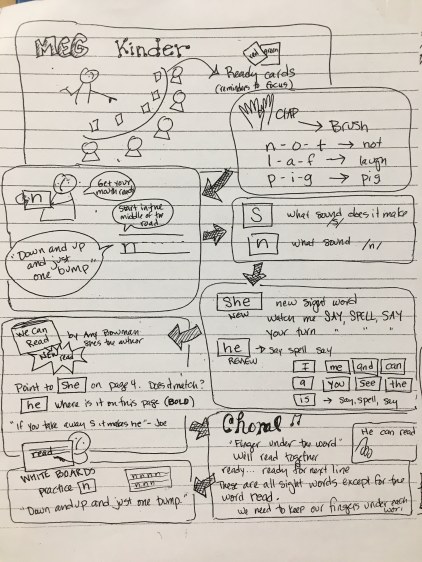 MEG Kinder
red green
Ready cards
(reminders to focus)
CLAP
Brush
n - o - t → not
l - a - f → laugh
p - i - g → pig
n
Get your
mouth ready
Start in the
middle of the
road
n
"Down and up
and just
one bump"
S what sound does it make
/s/
n what sound /n/
She new sight word
NEW watch me SAY, SPELL, SAY
your turn " " "
he → say spell say
REVIEW
I me and can
a you see the
is → say, spell, say
We can
Read
by Amy Bowman
She's the author
New read
Point to She on page 4. Does it match?
he where is it on this page (BOLD)
"If you take away S it makes he" - Joe
read
WHITE BOARDS
practice n
nnnn
nnn
"Down and up and just one bump."
Choral
"Finger under the word"
We'll read together
ready... ready for next line
These are all sight words except for the
word read.
we need to keep our fingers under each
word.
He can read